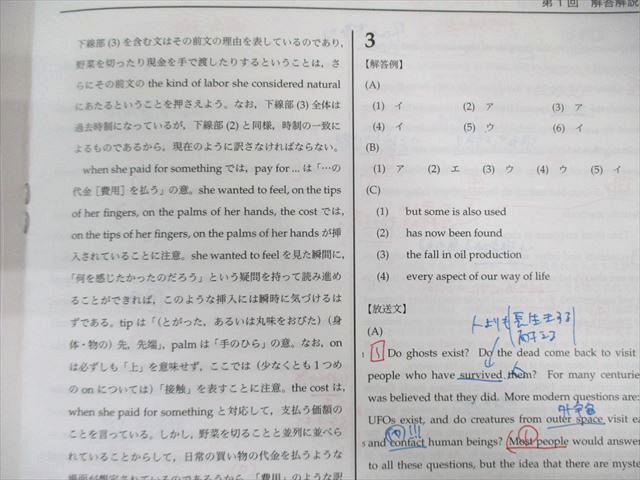 第1回 解答解説
下線部 (3) を含む文はその前文の理由を表しているのであり,
野菜を切ったり現金を手で渡したりするということは、さ
らにその前文の the kind of labor she considered natural
にあたるということを押さえよう。なお、下線部 (3) 全体は
過去時制になっているが、下線部 (2) と同様、時制の一致に
よるものであるから、現在のように訳さなければならない。
when she paid for something では、pay for ... は「…の
代金[費用]を払う」の意。she wanted to feel, on the tips
of her fingers, on the palms of her hands, the cost では,
on the tips of her fingers, on the palms of her hands が挿
入されていることに注意。she wanted to feel を見た瞬間に,
「何を感じたかったのだろう」という疑問を持って読み進め
ることができれば、このような挿入には瞬時に気づけるは
ずである。tip は「(とがった,あるいは丸味をおびた) (身
体・物の) 先, 先端」, palm は「手のひら」の意。なお, on
は必ずしも「上」を意味せず、ここでは (少なくとも1つめ
の on については)「接触」を表すことに注意。the cost は,
when she paid for something と対応して,支払う価額の
ことを言っている。しかし、野菜を切ることと並列に並べら
れていることからして、日常の買い物の代金を払うような
場面が想定されているのであるから、「費用」のような訳
3
【解答例】
(A)
(1) イ (2) ア (3) ア
(4) イ (5) ウ (6) イ
(B)
(1) ア (2) エ (3) ウ (4) ウ (5) イ
(C)
(1) but some is also used
(2) has now been found
(3) the fall in oil production
(4) every aspect of our way of life
【放送文】
(A)
人よりも 長生きする
1 Do ghosts exist? Do the dead come back to visit
people who have survived them? For many centurie
was believed that they did. More modern questions are:
外宇宙
UFOs exist, and do creatures from outer space visit ea
5 and contact human beings? Most people would answer
to all these questions, but the idea that there are myste